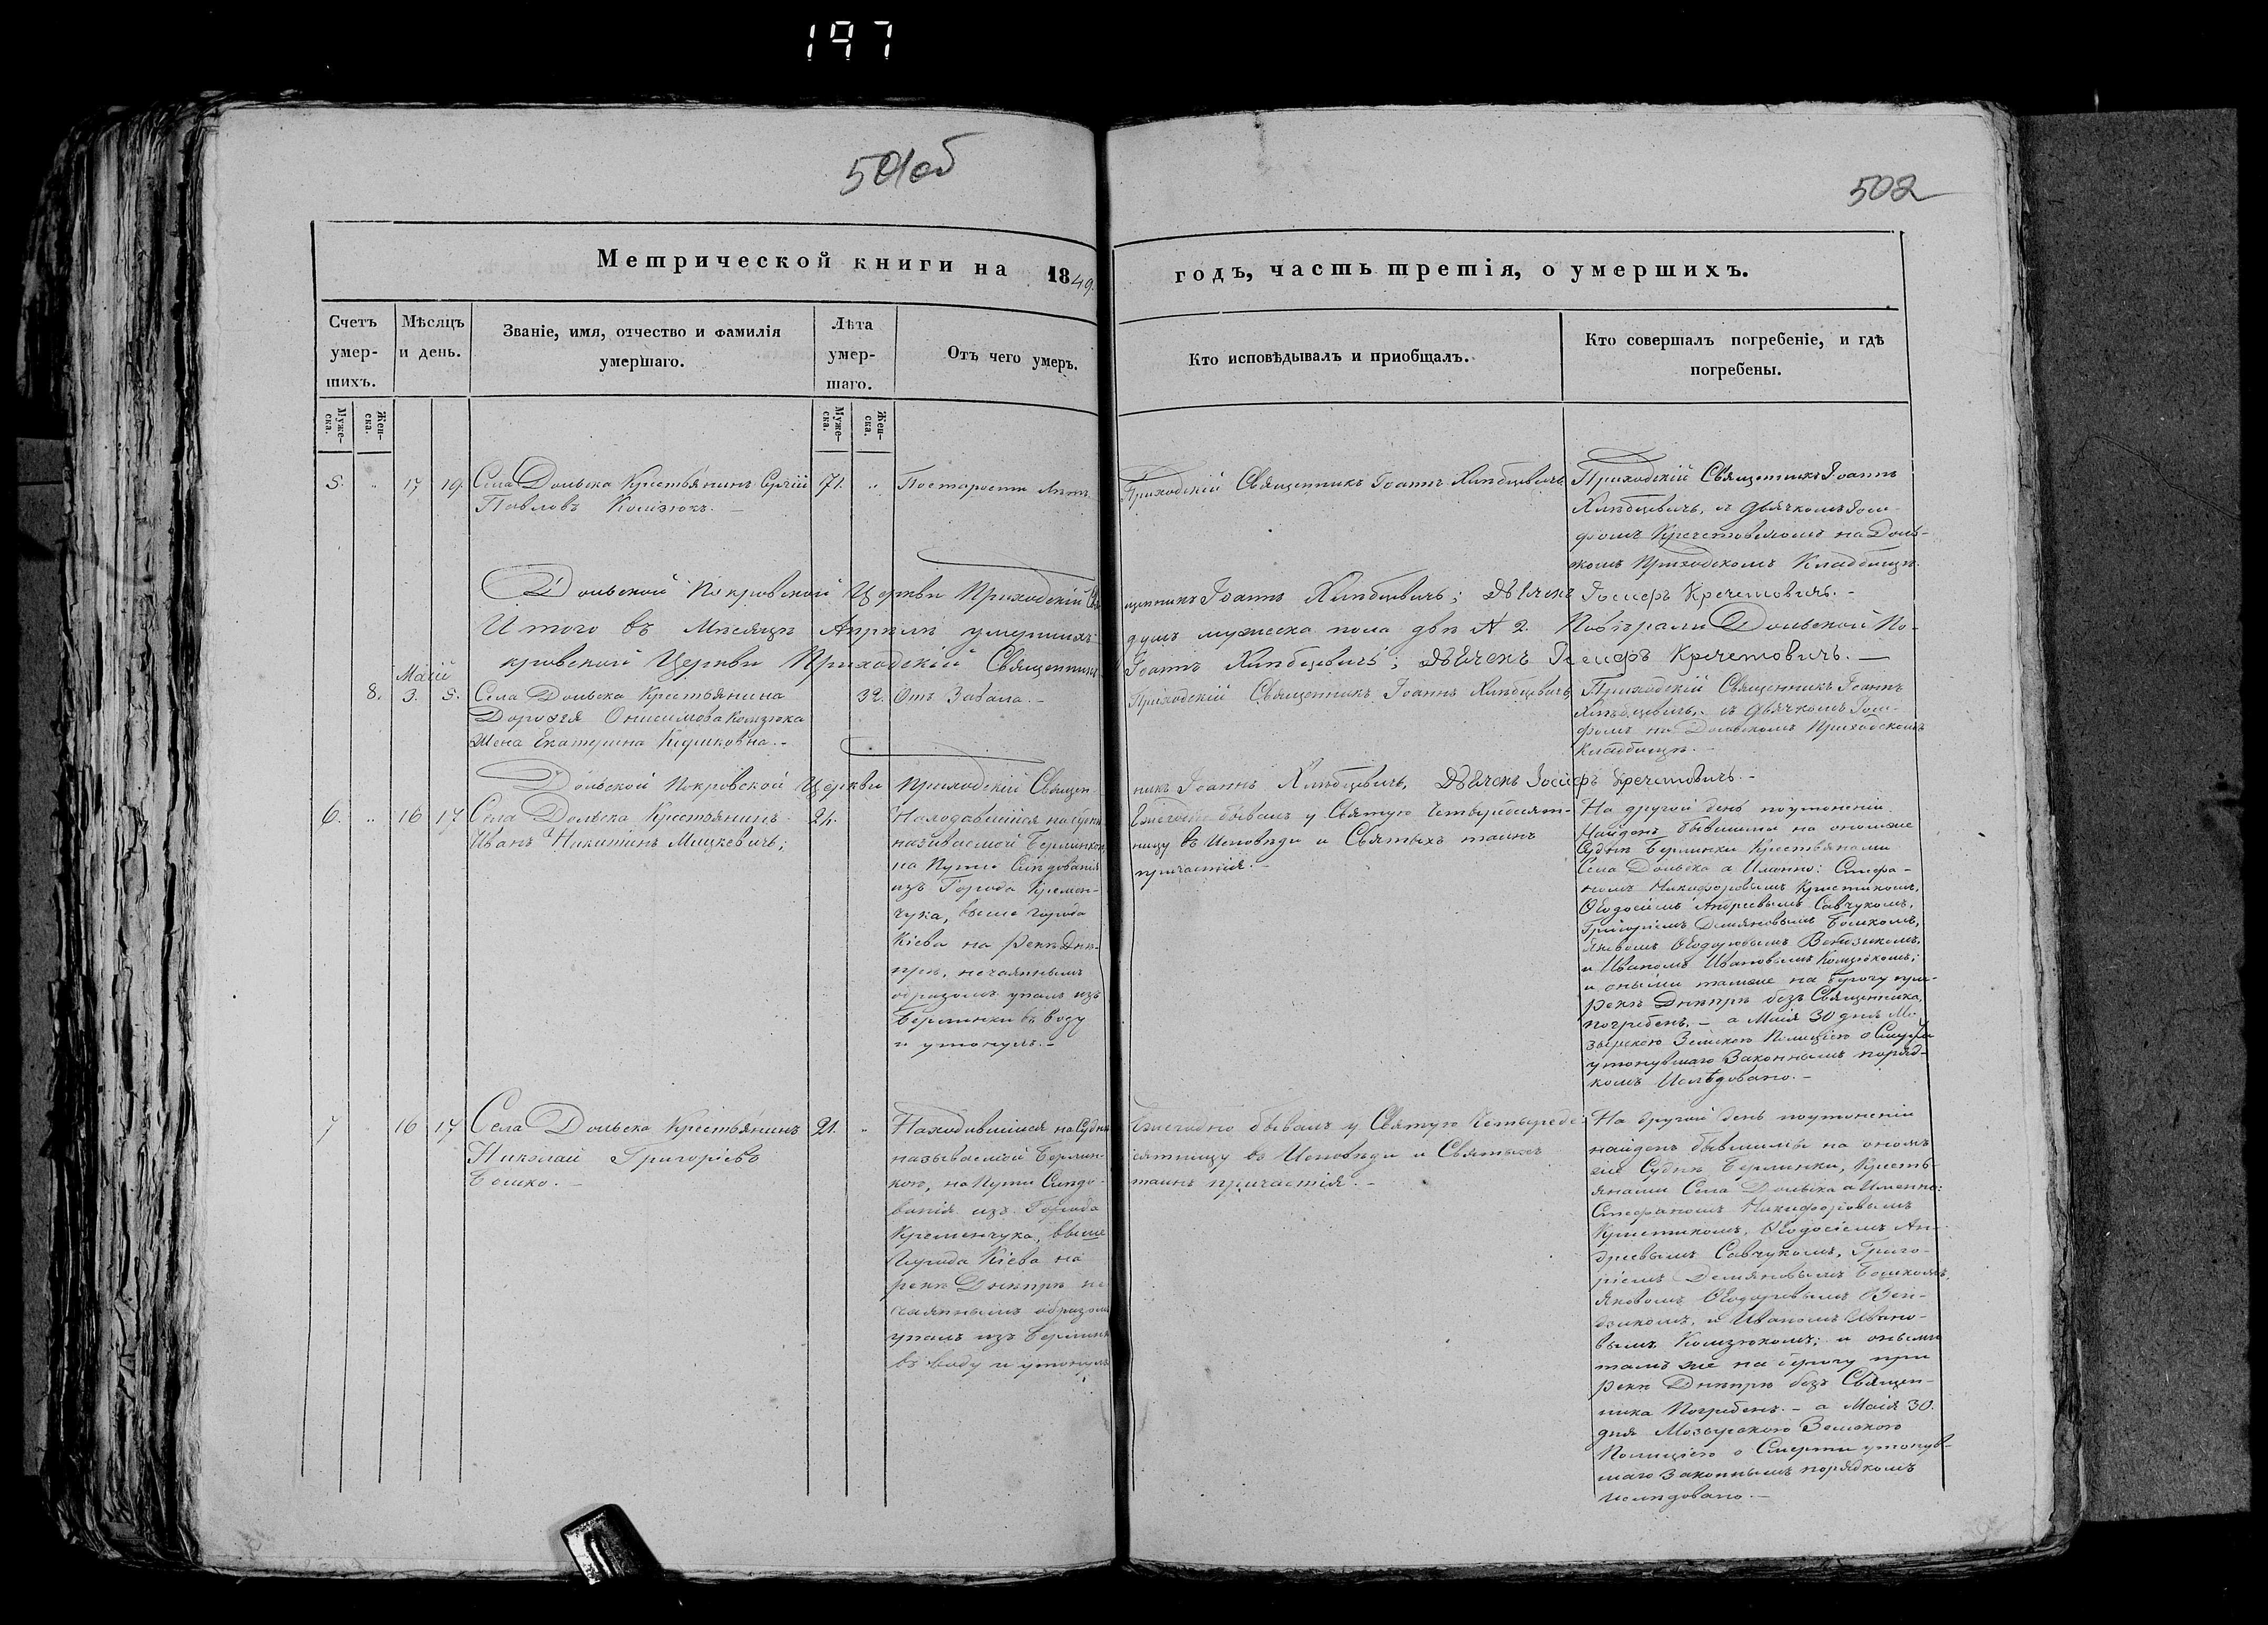 197
501об
502
Метрической книги на 1849. годъ, часть третія, о умершихъ.
Счетъ умер-шихъ.
Мѣсяцъ и день.
Званіе, имя, отчество и фамилія умершаго.
Лѣта умер-шаго.
Отъ чего умеръ.
Кто исповѣдывалъ и приобщалъ.
Кто совершалъ погребеніе, и гдѣ погребены.
Муже-ска.
Жен-ска.
Муже-ска.
Жен-ска.
5. „ 17 19. Села Дольска Крестьянинъ Сергій 71. „
Павловъ Комзюкъ.
Приходскій Священникъ Іоаннъ Хлѣбцевичъ
Приходскій Священникъ Іоаннъ
Хлѣбцевичъ, съ Дьячкомъ Іоси-
фомъ Кречетовичомъ на Доль-
комъ Приходскомъ Кладбищѣ.
Дольской Покровской Церкви Приходскій Священникъ Іоаннъ Хлѣбцевичъ; Дьячекъ Іосифъ Кречетовичъ. –
Итого въ Мѣсяцѣ Апрѣлѣ умершихъ душъ мужеска пола двѣ № 2. Дольской По-
кровской Церкви Приходскій Священникъ Іоаннъ Хлѣбцевичъ; Дьячекъ Іосифъ Кречетовичъ. —
Маій
8. 3. 5. Села Дольска Крестьянина 32. Отъ Завала. –
Дорофея Онисимова Комзюка
Жена Екатерина
Приходскій Священникъ Іоаннъ Хлѣбцевичъ
Приходскій Священникъ Іоаннъ
Хлѣбцевичъ, съ Дьячкомъ Іоси-
фомъ на Дольскомъ Приходскомъ
Кладбищѣ. –
Дольской Покровской Церкви Приходскій Священникъ Іоаннъ Хлѣбцевичъ, Дьячекъ Іосифъ Кречетовичъ. –
6. „ 16 17 Села Дольска Крестьянинъ 24.
Иванъ Никитинъ Мицкевичъ;
называемой Берлинкою,
на Пути Слѣдованія
изъ Города Кремен-
чука, выше города
Кіева на рекѣ Днѣ-
прѣ, нечаяннымъ
образомъ упалъ изъ
Берлинки въ воду
и утонулъ. –
Ежегодно бывалъ у Святую Четыредесят-
ницу въ Исповѣди и Святыхъ таинъ
причастія. –
На другой день поутоненіи
Найденъ бывшими на ономже
Суднѣ Берлинки Крестьянами
Села Дольска а Именно: Стефа-
номъ Никифоровымъ Кристикомъ,
Ѳеодосіемъ Андреевымъ Савчукомъ,
Григоріемъ Демяновымъ Бошкомъ,
Яковомъ Ѳеодоровымъ
и Иваномъ Ивановымъ Комзюкомъ;
и оными тамже на берегу при
рекѣ Днѣпрѣ безъ Священника,
погребенъ. – а Маія 30 дня Мо-
зырскою Земскою Полиціею о Смерти
утонувшаго Законнымъ поряд-
комъ Ислѣдовано. –
7 16 17 Села Дольска Крестьянинъ 21. „
Николай Григоріевъ
Бошко. –
Находившійся на Суднѣ
называемой Берлин-
кою, на Пути Слѣдо-
ванія изъ Города
Кременчука, выше
Города Кіева на
рекѣ Днѣпрѣ не
чаяннымъ образомъ
упалъ изъ Берлинки
въ воду и утонулъ
Ежегодно бывалъ у Святую Четыреде-
сятницу въ Исповѣди и Святыхъ
таинъ причастія. –
На другой день поутоненіи
найденъ бывшимы на ономъ
же Суднѣ Берлинки, Кресть-
янами Села Дольска а Именно:
Стефаномъ Никифоровымъ
Кристикомъ, Ѳеодосіемъ Ан-
дреевымъ Савчукомъ, Григо-
ріемъ Демяновымъ Бошкомъ,
Яковомъ Ѳеодоровымъ
и Иваномъ Ивано-
вымъ Комзюкомъ; и оными
тамъ же на берегу при
рекѣ Днѣпрѣ безъ Священ-
ника Погребенъ. – а Маія 30.
дня Мозырскою Земскою
Полиціею о Смерти утонув-
шаго Законнымъ порядкомъ
Ислѣдовано. –